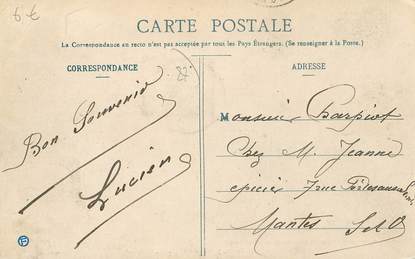 6 €
CARTE POSTALE
La Correspondance au recto n'est pas acceptée par tous les Pays Étrangers. (Se renseigner à la Poste.)
CORRESPONDANCE
ADRESSE
Bon Souvenir
Lucien
Monsieur Charpiot
Chez M. Jeanne
épicier 7 rue
Mantes S et O